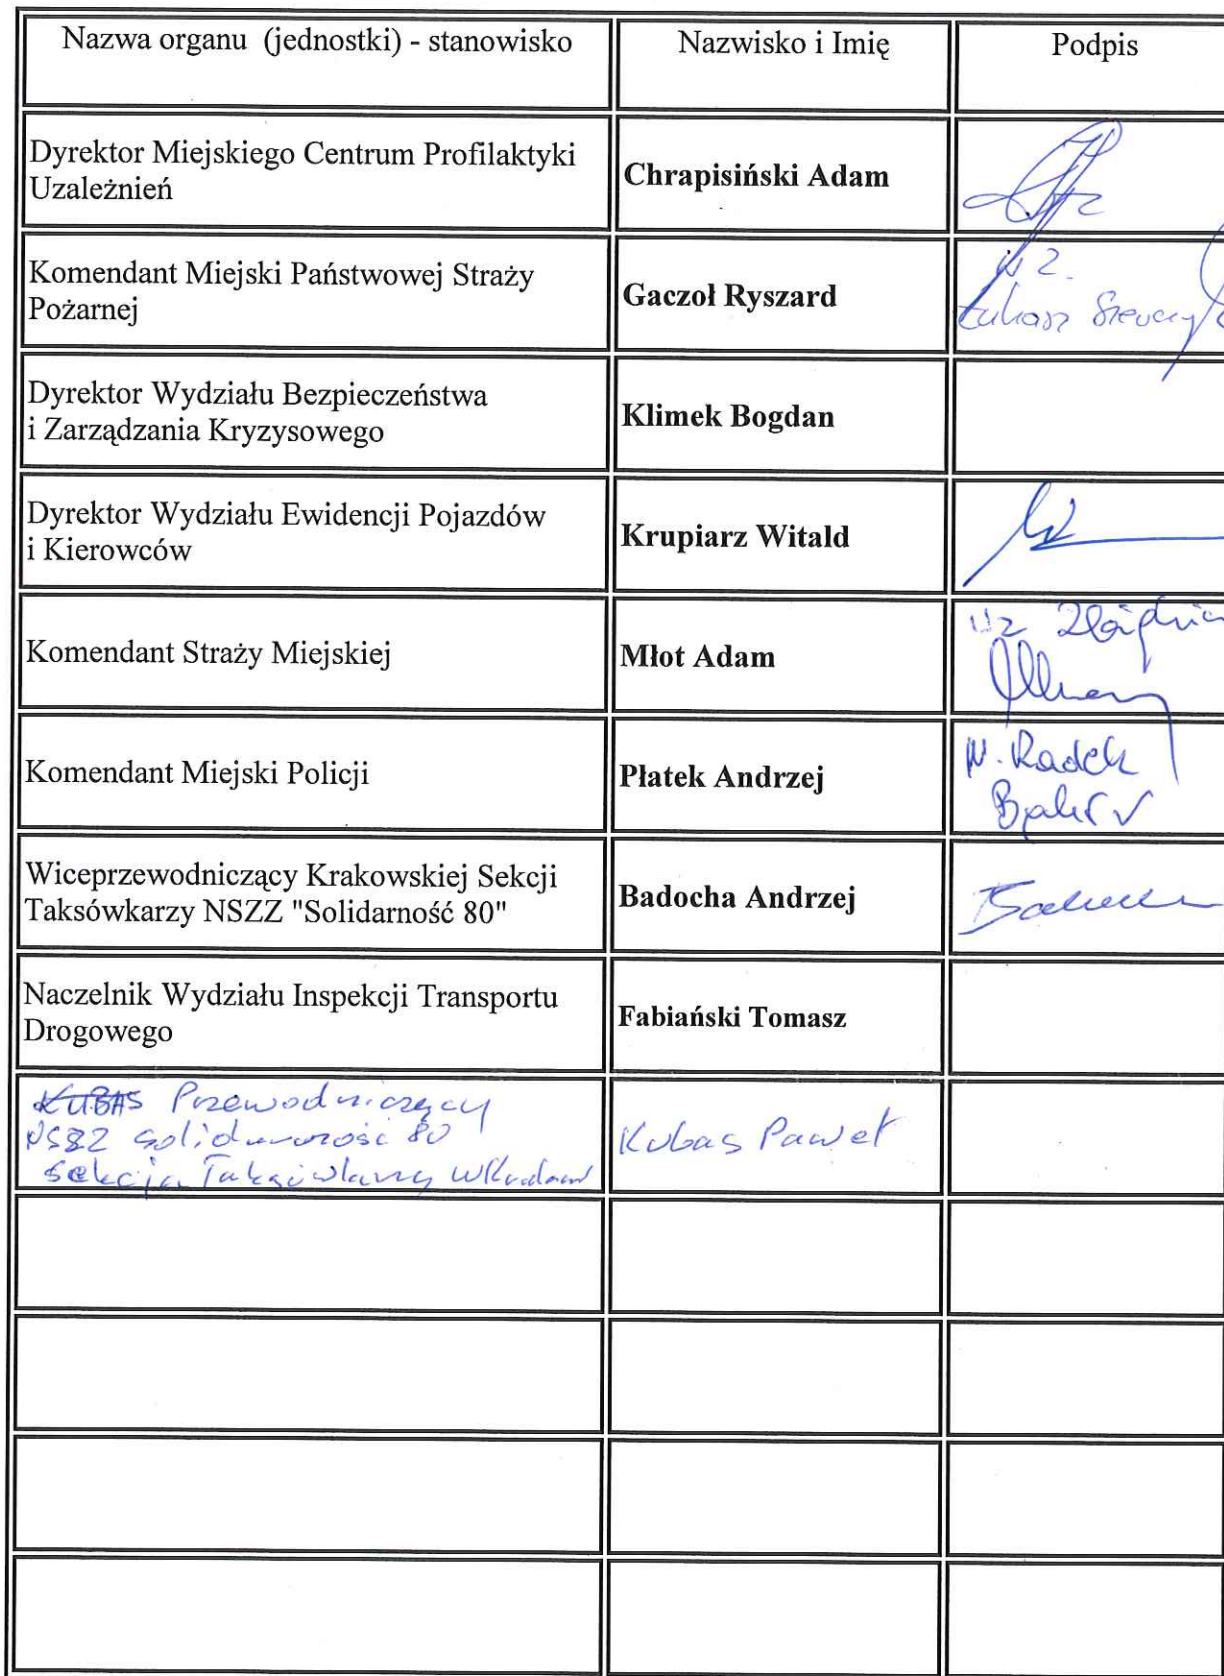 Nazwa organu (jednostki) - stanowisko
Nazwisko i Imię
Podpis
Dyrektor Miejskiego Centrum Profilaktyki
Uzależnień
Chrapisiński Adam
Komendant Miejski Państwowej Straży
Pożarnej
Gaczoł Ryszard
Łukasz
Dyrektor Wydziału Bezpieczeństwa
i Zarządzania Kryzysowego
Klimek Bogdan
Dyrektor Wydziału Ewidencji Pojazdów
i Kierowców
Krupiarz Witald
Komendant Straży Miejskiej
Młot Adam
Komendant Miejski Policji
Płatek Andrzej
Wiceprzewodniczący Krakowskiej Sekcji
Taksówkarzy NSZZ "Solidarność 80"
Badocha Andrzej
Naczelnik Wydziału Inspekcji Transportu
Drogowego
Fabiański Tomasz
KUBAS Przewodniczący
NSZZ Solidarność 80
Sekcja Taksówkarzy
Kubas Paweł